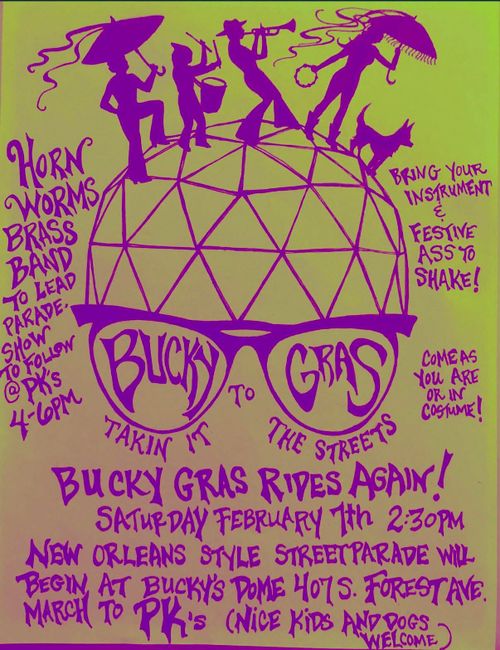 HORN
WORMS
BRASS
BAND
TO LEAD
PARADE.
SHOW
TO FOLLOW
@ PK's
4-6PM
BRING YOUR
INSTRUMENT
&
FESTIVE
ASS TO
SHAKE!
COME AS
YOU ARE
OR IN
COSTUME!
BUCKY TO GRAS
TAKIN IT THE STREETS
BUCKY GRAS RIDES AGAIN!
SATURDAY FEBRUARY 7th 2:30PM
NEW ORLEANS STYLE STREETPARADE WILL
BEGIN AT BUCKY'S DOME 407 S. FOREST AVE.
MARCH TO PK's (NICE KIDS AND DOGS
WELCOME)